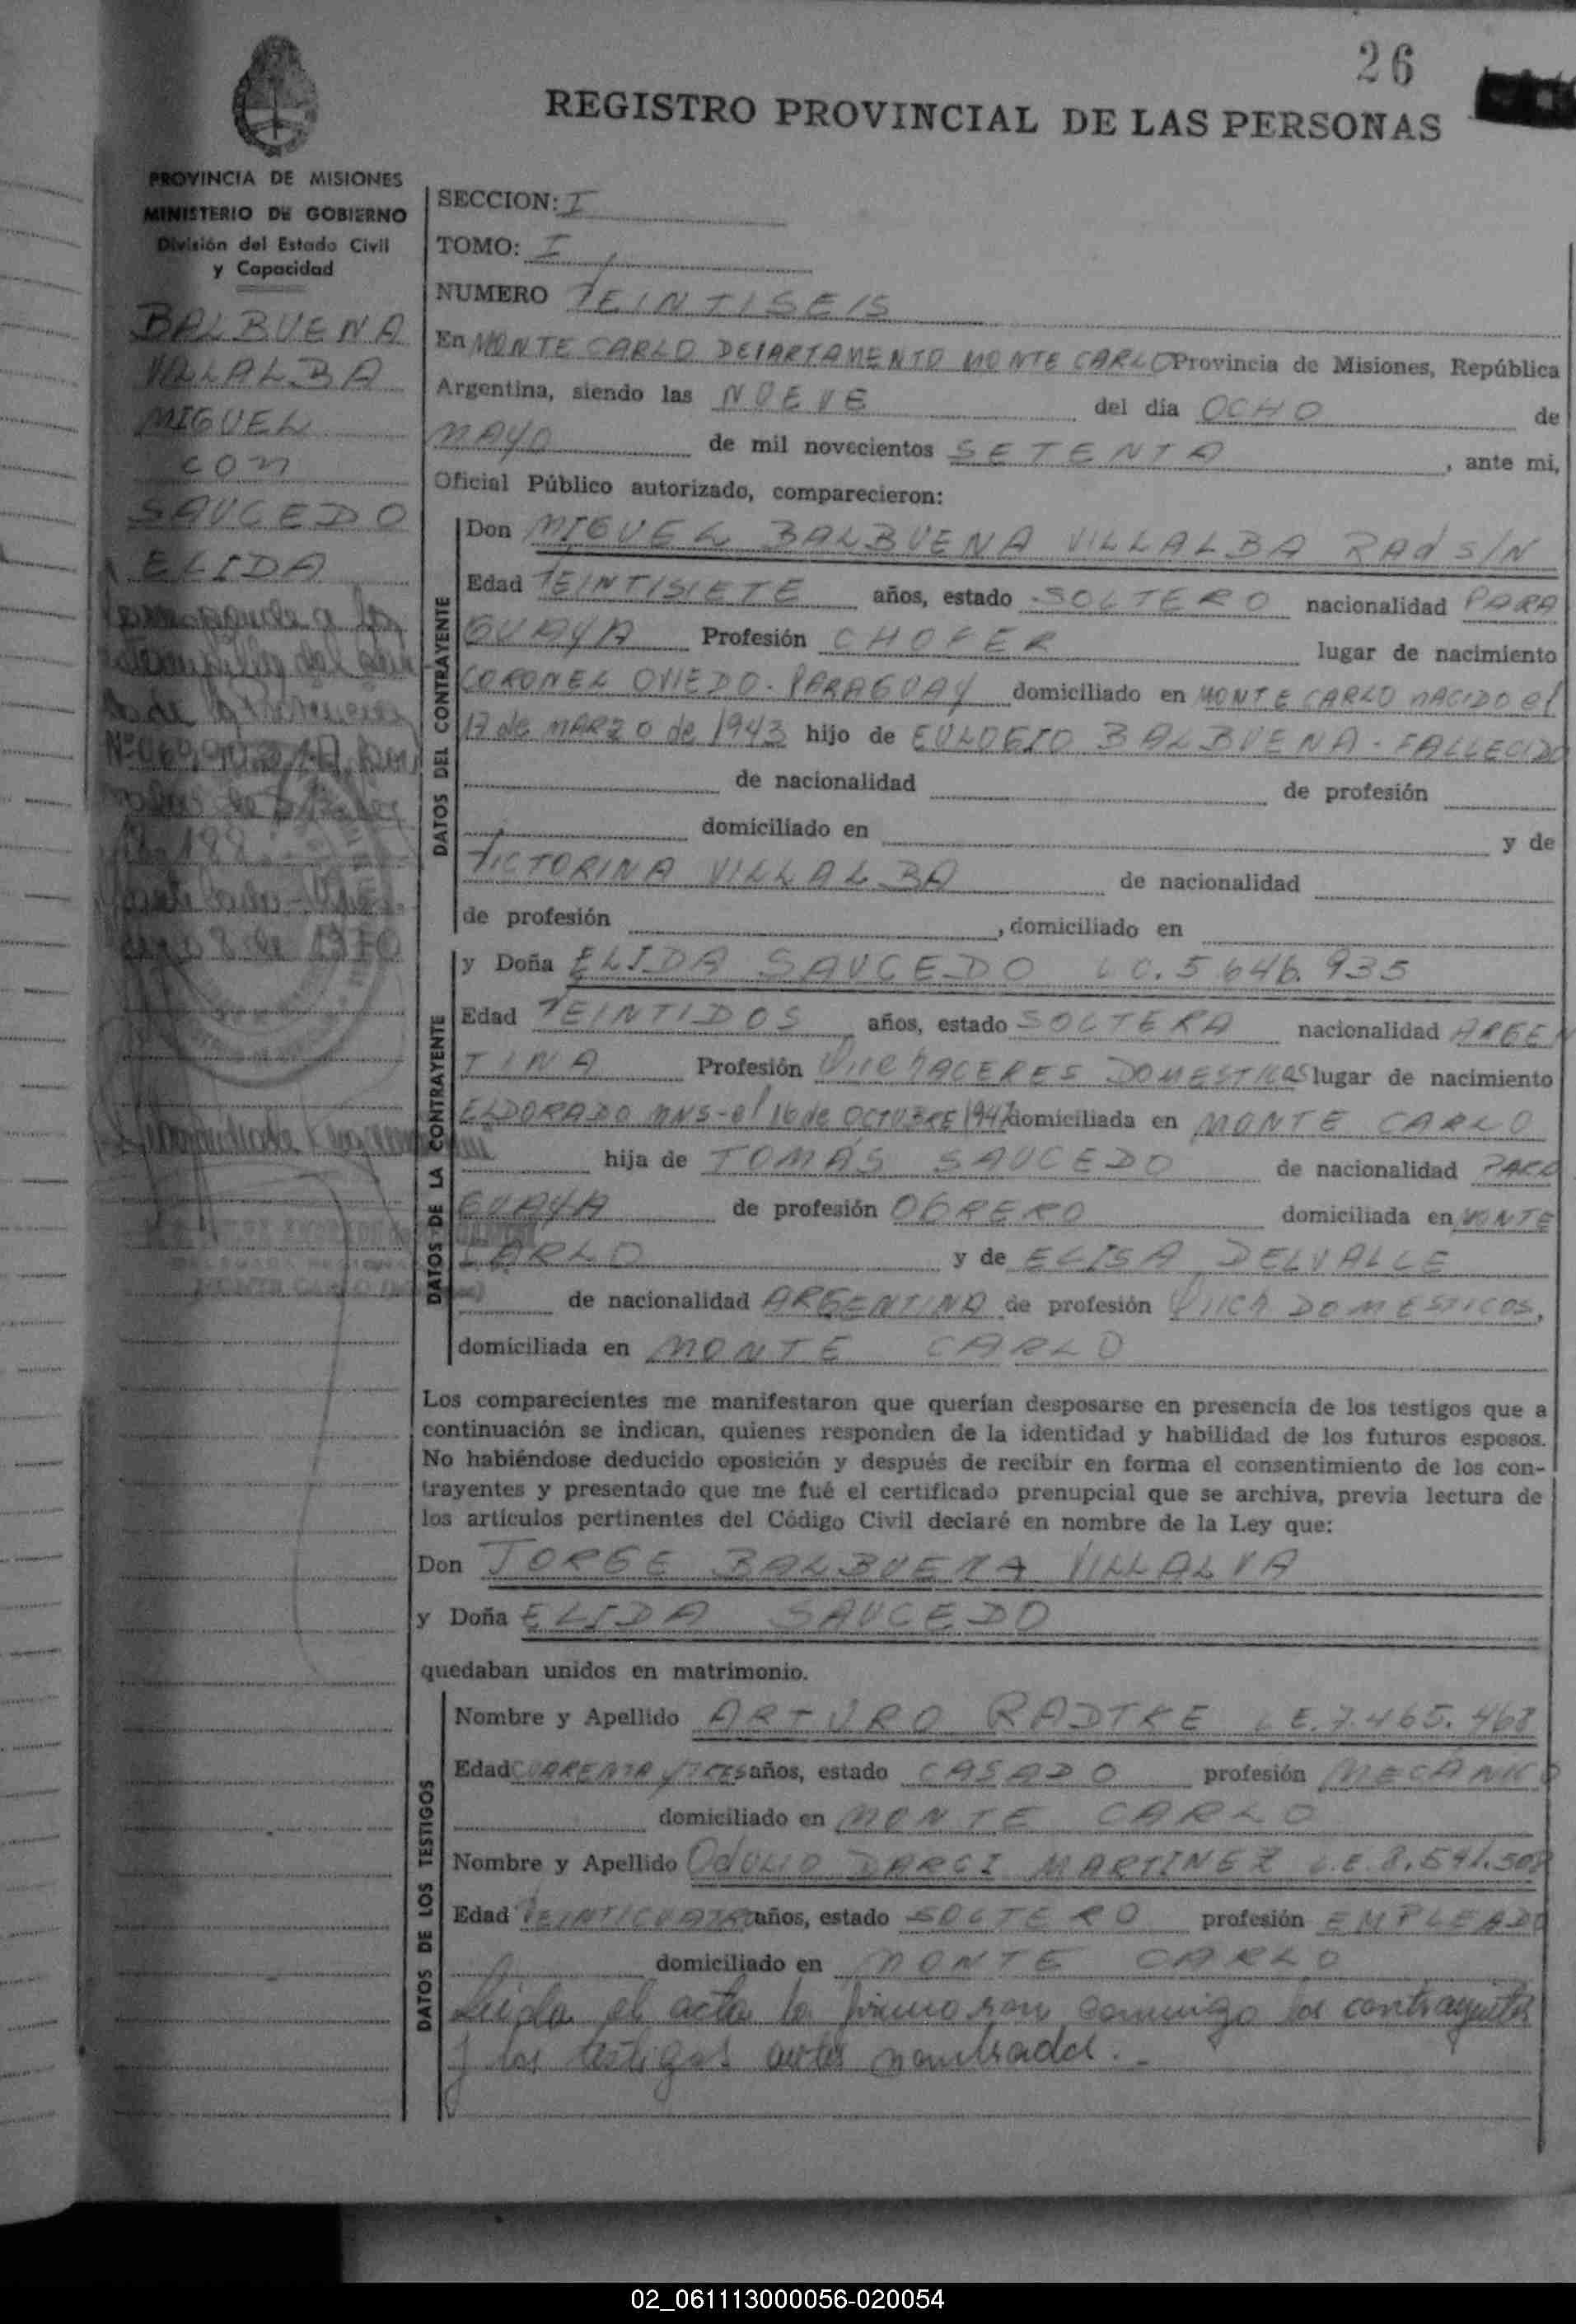 26
REGISTRO PROVINCIAL DE LAS PERSONAS
PROVINCIA DE MISIONES
MINISTERIO DE GOBIERNO
División del Estado Civil
y Capacidad
BALBUENA
VILLALBA
MIGUEL
con
SAUCEDO
ELIDA
SECCION: I
TOMO: I
NUMERO VEINTISEIS
En MONTE CARLO DEPARTAMENTO MONTE CARLO Provincia de Misiones, República
Argentina, siendo las NUEVE del día OCHO de
MAYO de mil novecientos SETENTA, ante mi,
Oficial Público autorizado, comparecieron:
DATOS DEL CONTRAYENTE
Don MIGUEL BALBUENA VILLALBA RAd S/N
Edad VEINTISIETE años, estado SOLTERO nacionalidad PARA
GUAYA Profesión CHOFER lugar de nacimiento
CORONEL OVIEDO - PARAGUAY domiciliado en MONTE CARLO NACIDO el
17 de MARZO de 1943 hijo de EULOGIO BALBUENA - FALLECIDO
de nacionalidad de profesión
domiciliado en y de
VICTORINA VILLALBA de nacionalidad
de profesión , domiciliado en
DATOS DE LA CONTRAYENTE
y Doña ELIDA SAUCEDO L C. 5.646.935
Edad VEINTIDOS años, estado SOLTERA nacionalidad ARGEN
TINA Profesión QUEHACERES DOMESTICOS lugar de nacimiento
ELDORADO MNS - el 16 de OCTUBRE 1947 domiciliada en MONTE CARLO
hija de TOMÁS SAUCEDO de nacionalidad PARA
GUAYA de profesión OBRERO domiciliada en MONTE
CARLO y de ELISA DELVALLE
de nacionalidad ARGENTINA de profesión DOMESTICOS,
domiciliada en MONTE CARLO
Los comparecientes me manifestaron que querían desposarse en presencia de los testigos que a
continuación se indican, quienes responden de la identidad y habilidad de los futuros esposos.
No habiéndose deducido oposición y después de recibir en forma el consentimiento de los con-
trayentes y presentado que me fué el certificado prenupcial que se archiva, previa lectura de
los artículos pertinentes del Código Civil declaré en nombre de la Ley que:
Don JORGE BALBUENA VILLALVA
y Doña ELIDA SAUCEDO
quedaban unidos en matrimonio.
DATOS DE LOS TESTIGOS
Nombre y Apellido ARTURO RADTKE L E. 7.465.468
Edad CUARENTA Y TRES años, estado CASADO profesión MECANICO
domiciliado en MONTE CARLO
Nombre y Apellido OdULIO DARCI MARTINEZ L.E. 8.541.508
Edad VEINTICUATRO años, estado SOLTERO profesión EMPLEADO
domiciliado en MONTE CARLO
Leida el acta la firmaron conmigo los contrayentes
y los testigos antes nombrados.-
02_061113000056-020054